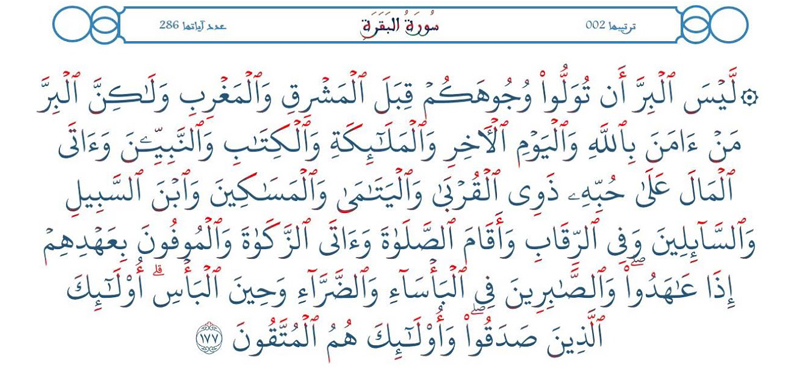 ترتيبها 002 سورة البقرة عدد آياتها 286
۞ لَّيْسَ ٱلْبِرَّ أَن تُوَلُّوا۟ وُجُوهَكُمْ قِبَلَ ٱلْمَشْرِقِ وَٱلْمَغْرِبِ وَلَـٰكِنَّ ٱلْبِرَّ
مَنْ ءَامَنَ بِٱللَّهِ وَٱلْيَوْمِ ٱلْـَٔاخِرِ وَٱلْمَلَـٰٓئِكَةِ وَٱلْكِتَـٰبِ وَٱلنَّبِيِّـۧنَ وَءَاتَى
ٱلْمَالَ عَلَىٰ حُبِّهِۦ ذَوِى ٱلْقُرْبَىٰ وَٱلْيَتَـٰمَىٰ وَٱلْمَسَـٰكِينَ وَٱبْنَ ٱلسَّبِيلِ
وَٱلسَّآئِلِينَ وَفِى ٱلرِّقَابِ وَأَقَامَ ٱلصَّلَوٰةَ وَءَاتَى ٱلزَّكَوٰةَ وَٱلْمُوفُونَ بِعَهْدِهِمْ
إِذَا عَـٰهَدُوا۟ ۖ وَٱلصَّـٰبِرِينَ فِى ٱلْبَأْسَآءِ وَٱلضَّرَّآءِ وَحِينَ ٱلْبَأْسِ ۗ أُو۟لَـٰٓئِكَ
ٱلَّذِينَ صَدَقُوا۟ ۖ وَأُو۟لَـٰٓئِكَ هُمُ ٱلْمُتَّقُونَ ١٧٧